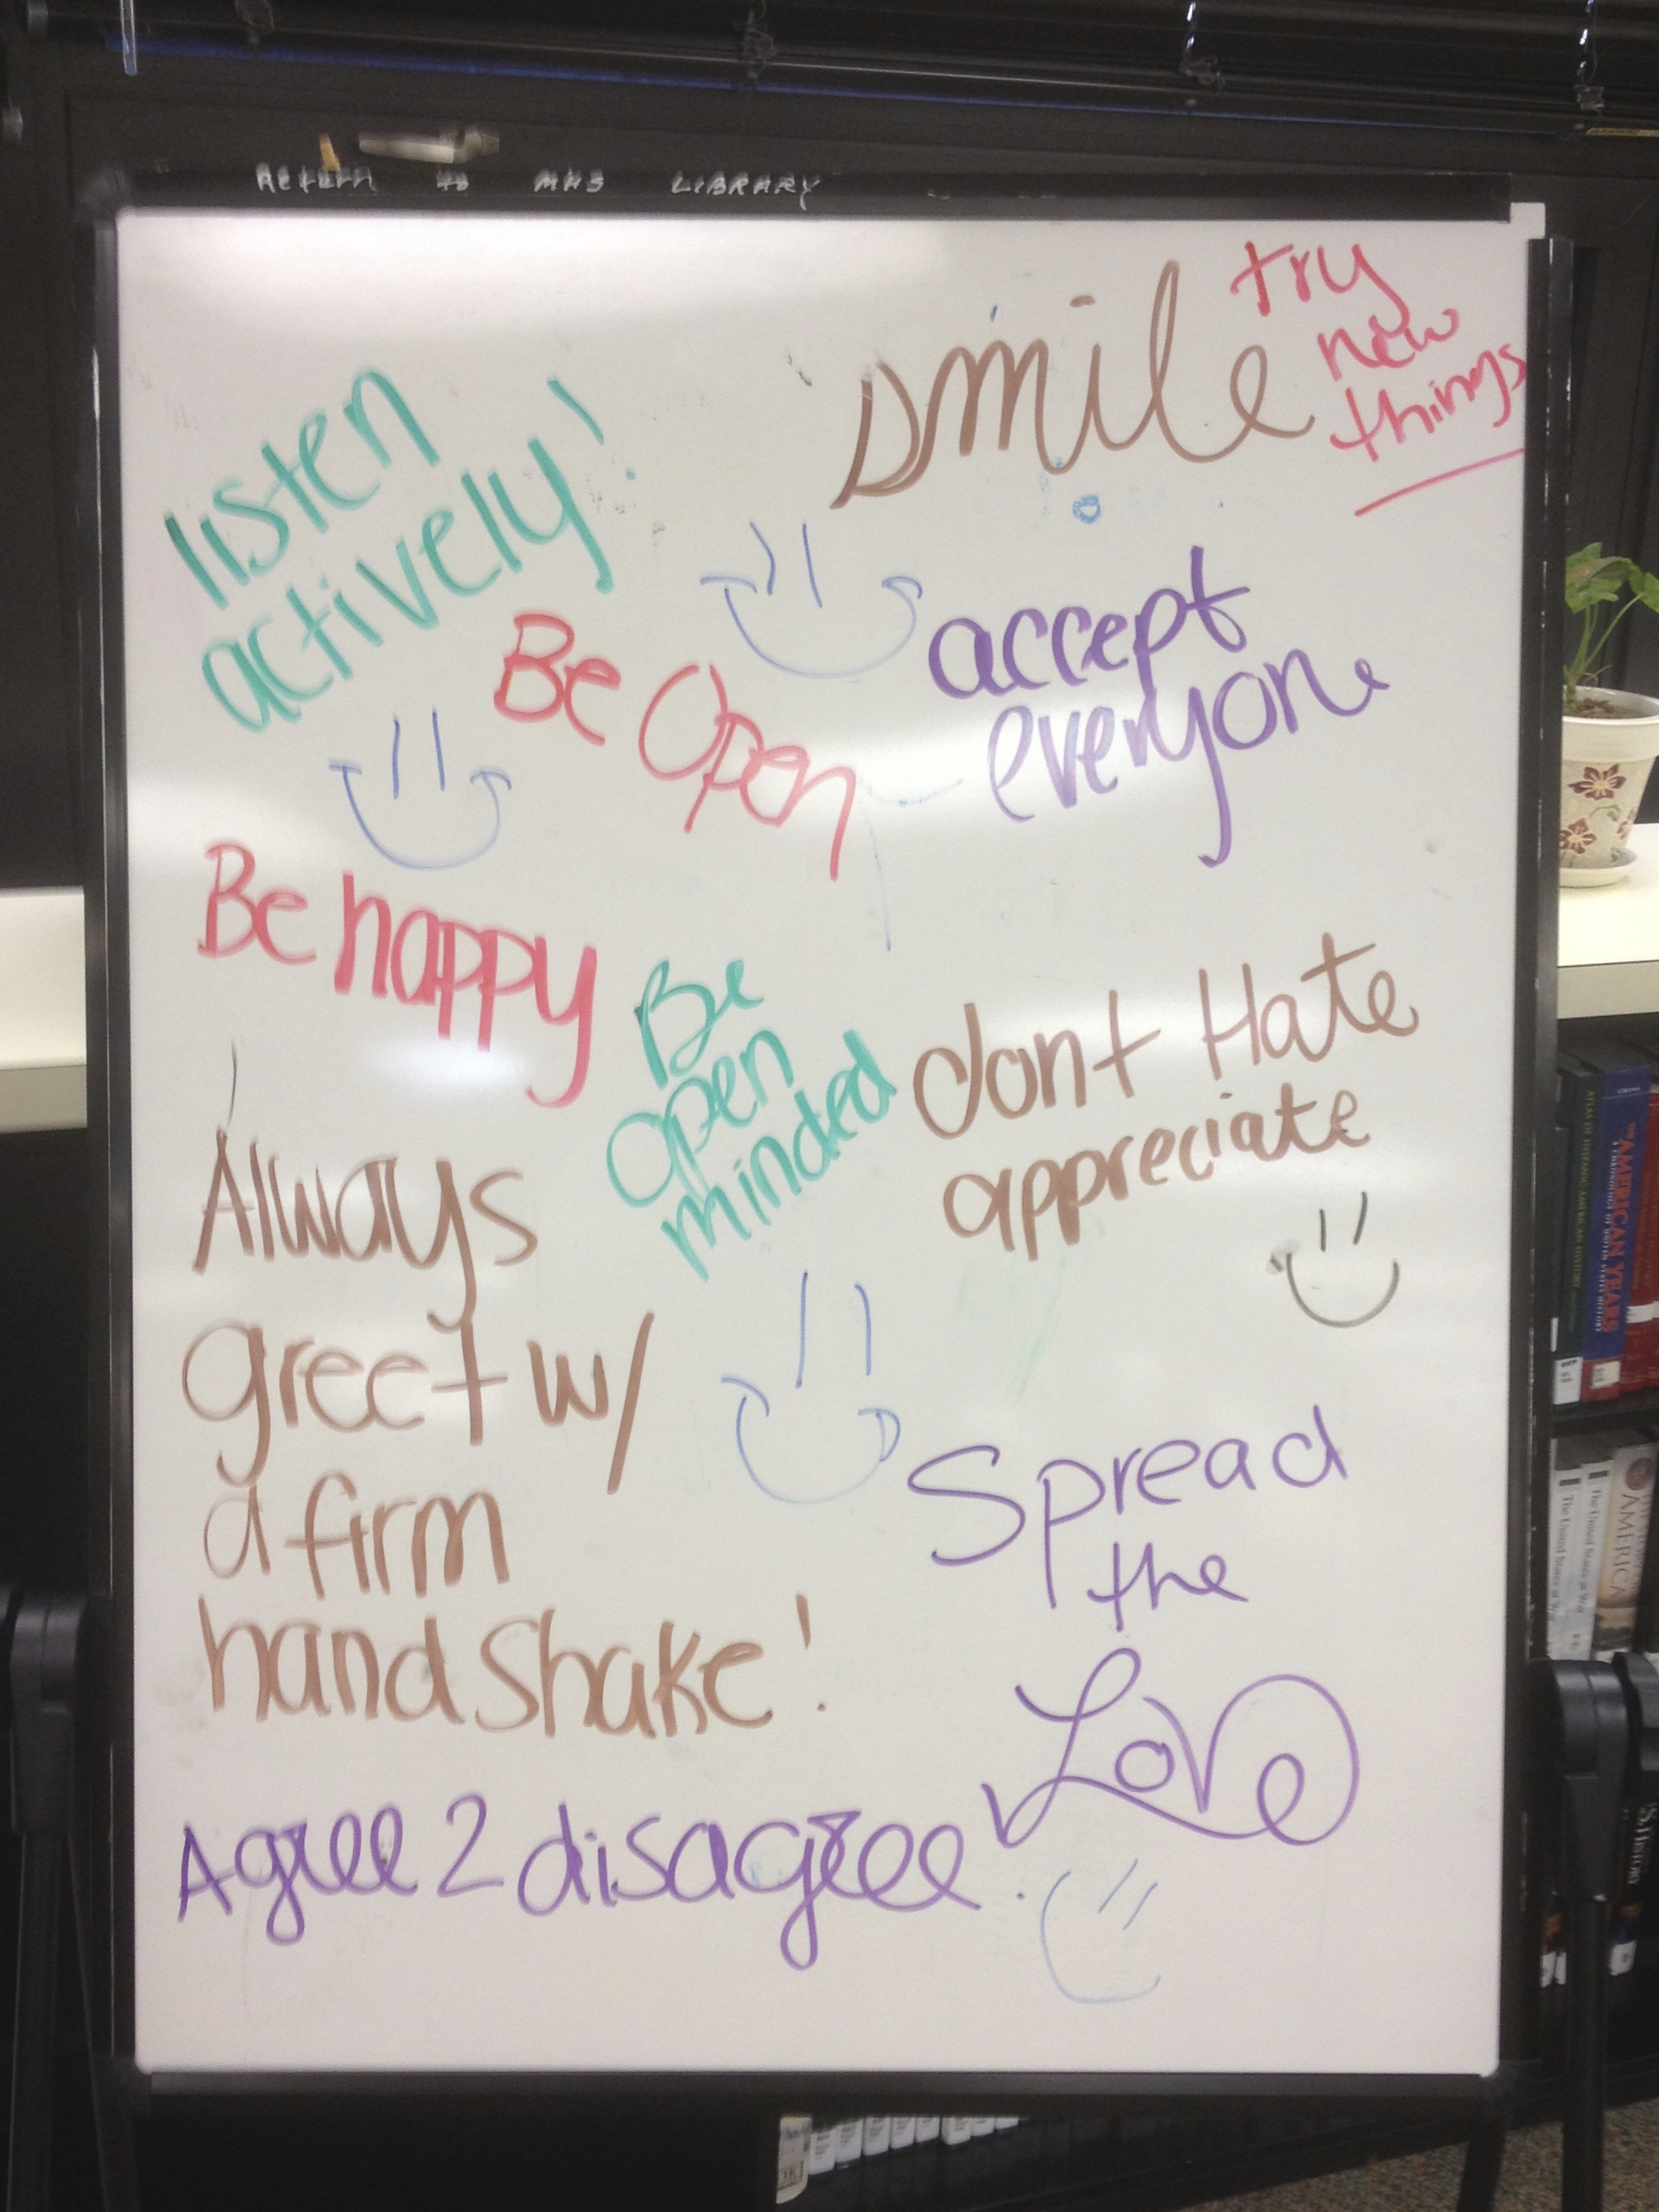 Return to MHS LIBRARY
smile
try
new
things
listen
actively!
Be Open
accept
everyone
Be happy
Be
open
minded
dont Hate
appreciate
Always
greet w/
a firm
handshake!
Spread
the
Love
Agree 2 disagree.
ATLAS OF HISPANIC-AMERICAN HISTORY
THE AMERICAN YEARS
The United States at War
The United States at War
AMERICA